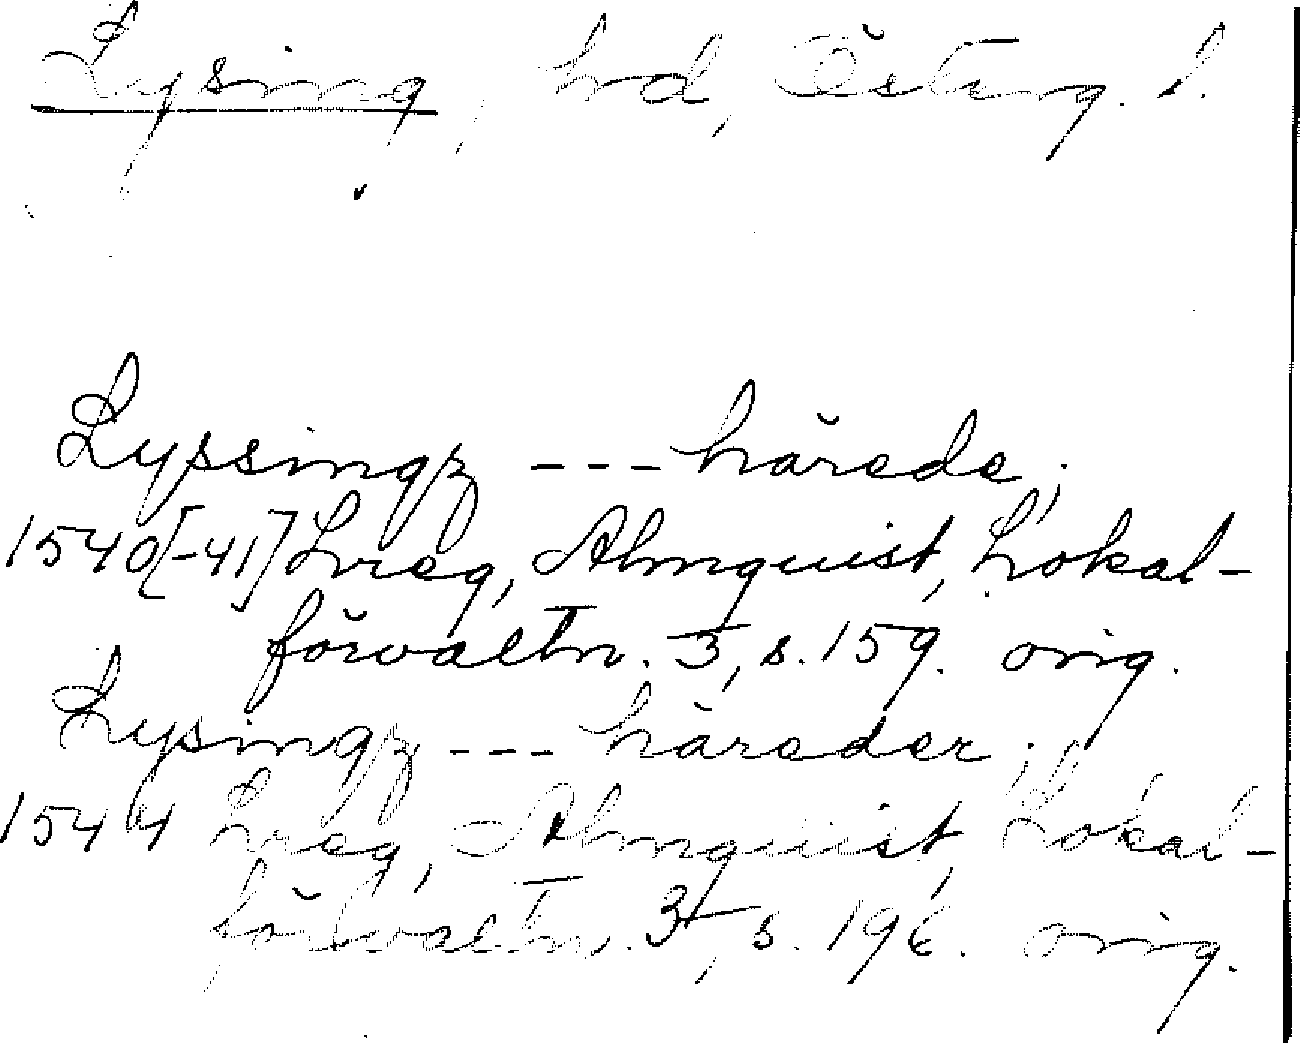 Lysing, hd, Österg. l.
Lyssingz --- härede;
1540[-41] Lreg, Almquist, Lokal-
förvaltn. 3, s. 159. orig.
Lysingz --- häreder;
1544 Lreg, Almquist, Lokal-
förvaltn. 3, s. 196. orig.